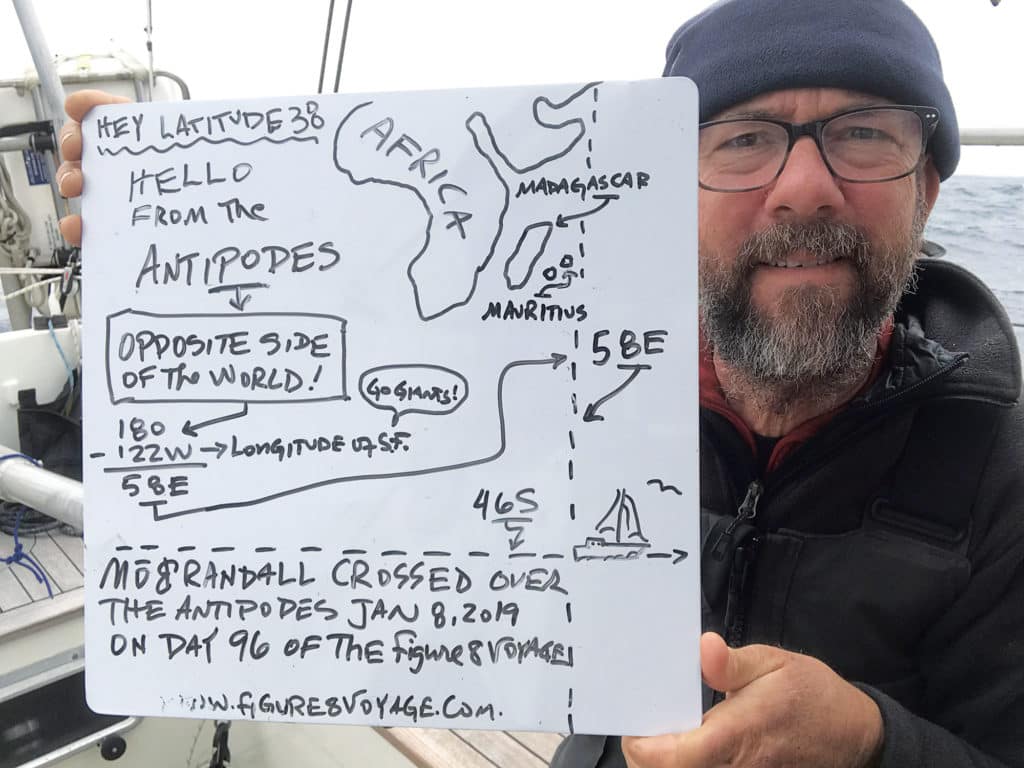 HEY LATITUDE 38
HELLO
FROM THE
ANTIPODES
OPPOSITE SIDE
OF THE WORLD!
180
- 122W → LONGITUDE OF S.F.
58E
GO GIANTS!
AFRICA
MADAGASCAR
MAURITIUS
58E
46S
MŌ & RANDALL CROSSED OVER
THE ANTIPODES JAN 8, 2019
ON DAY 96 OF THE figure 8 VOYAGE
WWW.FIGURE8VOYAGE.COM.